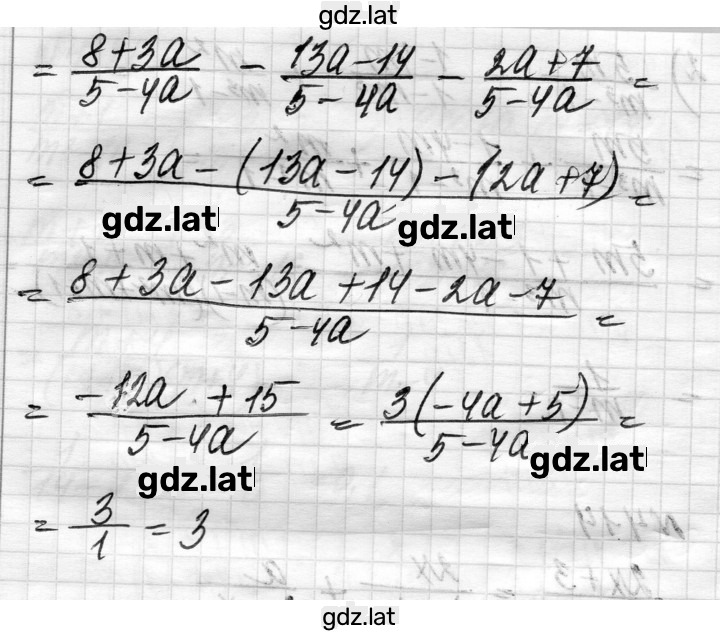 gdz.lat
= (8+3a)/(5-4a) - (13a-14)/(5-4a) - (2a+7)/(5-4a) =
= (8+3a-(13a-14)-(2a+7))/(5-4a) =
gdz.lat gdz.lat
= (8+3a-13a+14-2a-7)/(5-4a) =
= (-12a+15)/(5-4a) = (3(-4a+5))/(5-4a) =
gdz.lat gdz.lat
= 3/1 = 3
gdz.lat